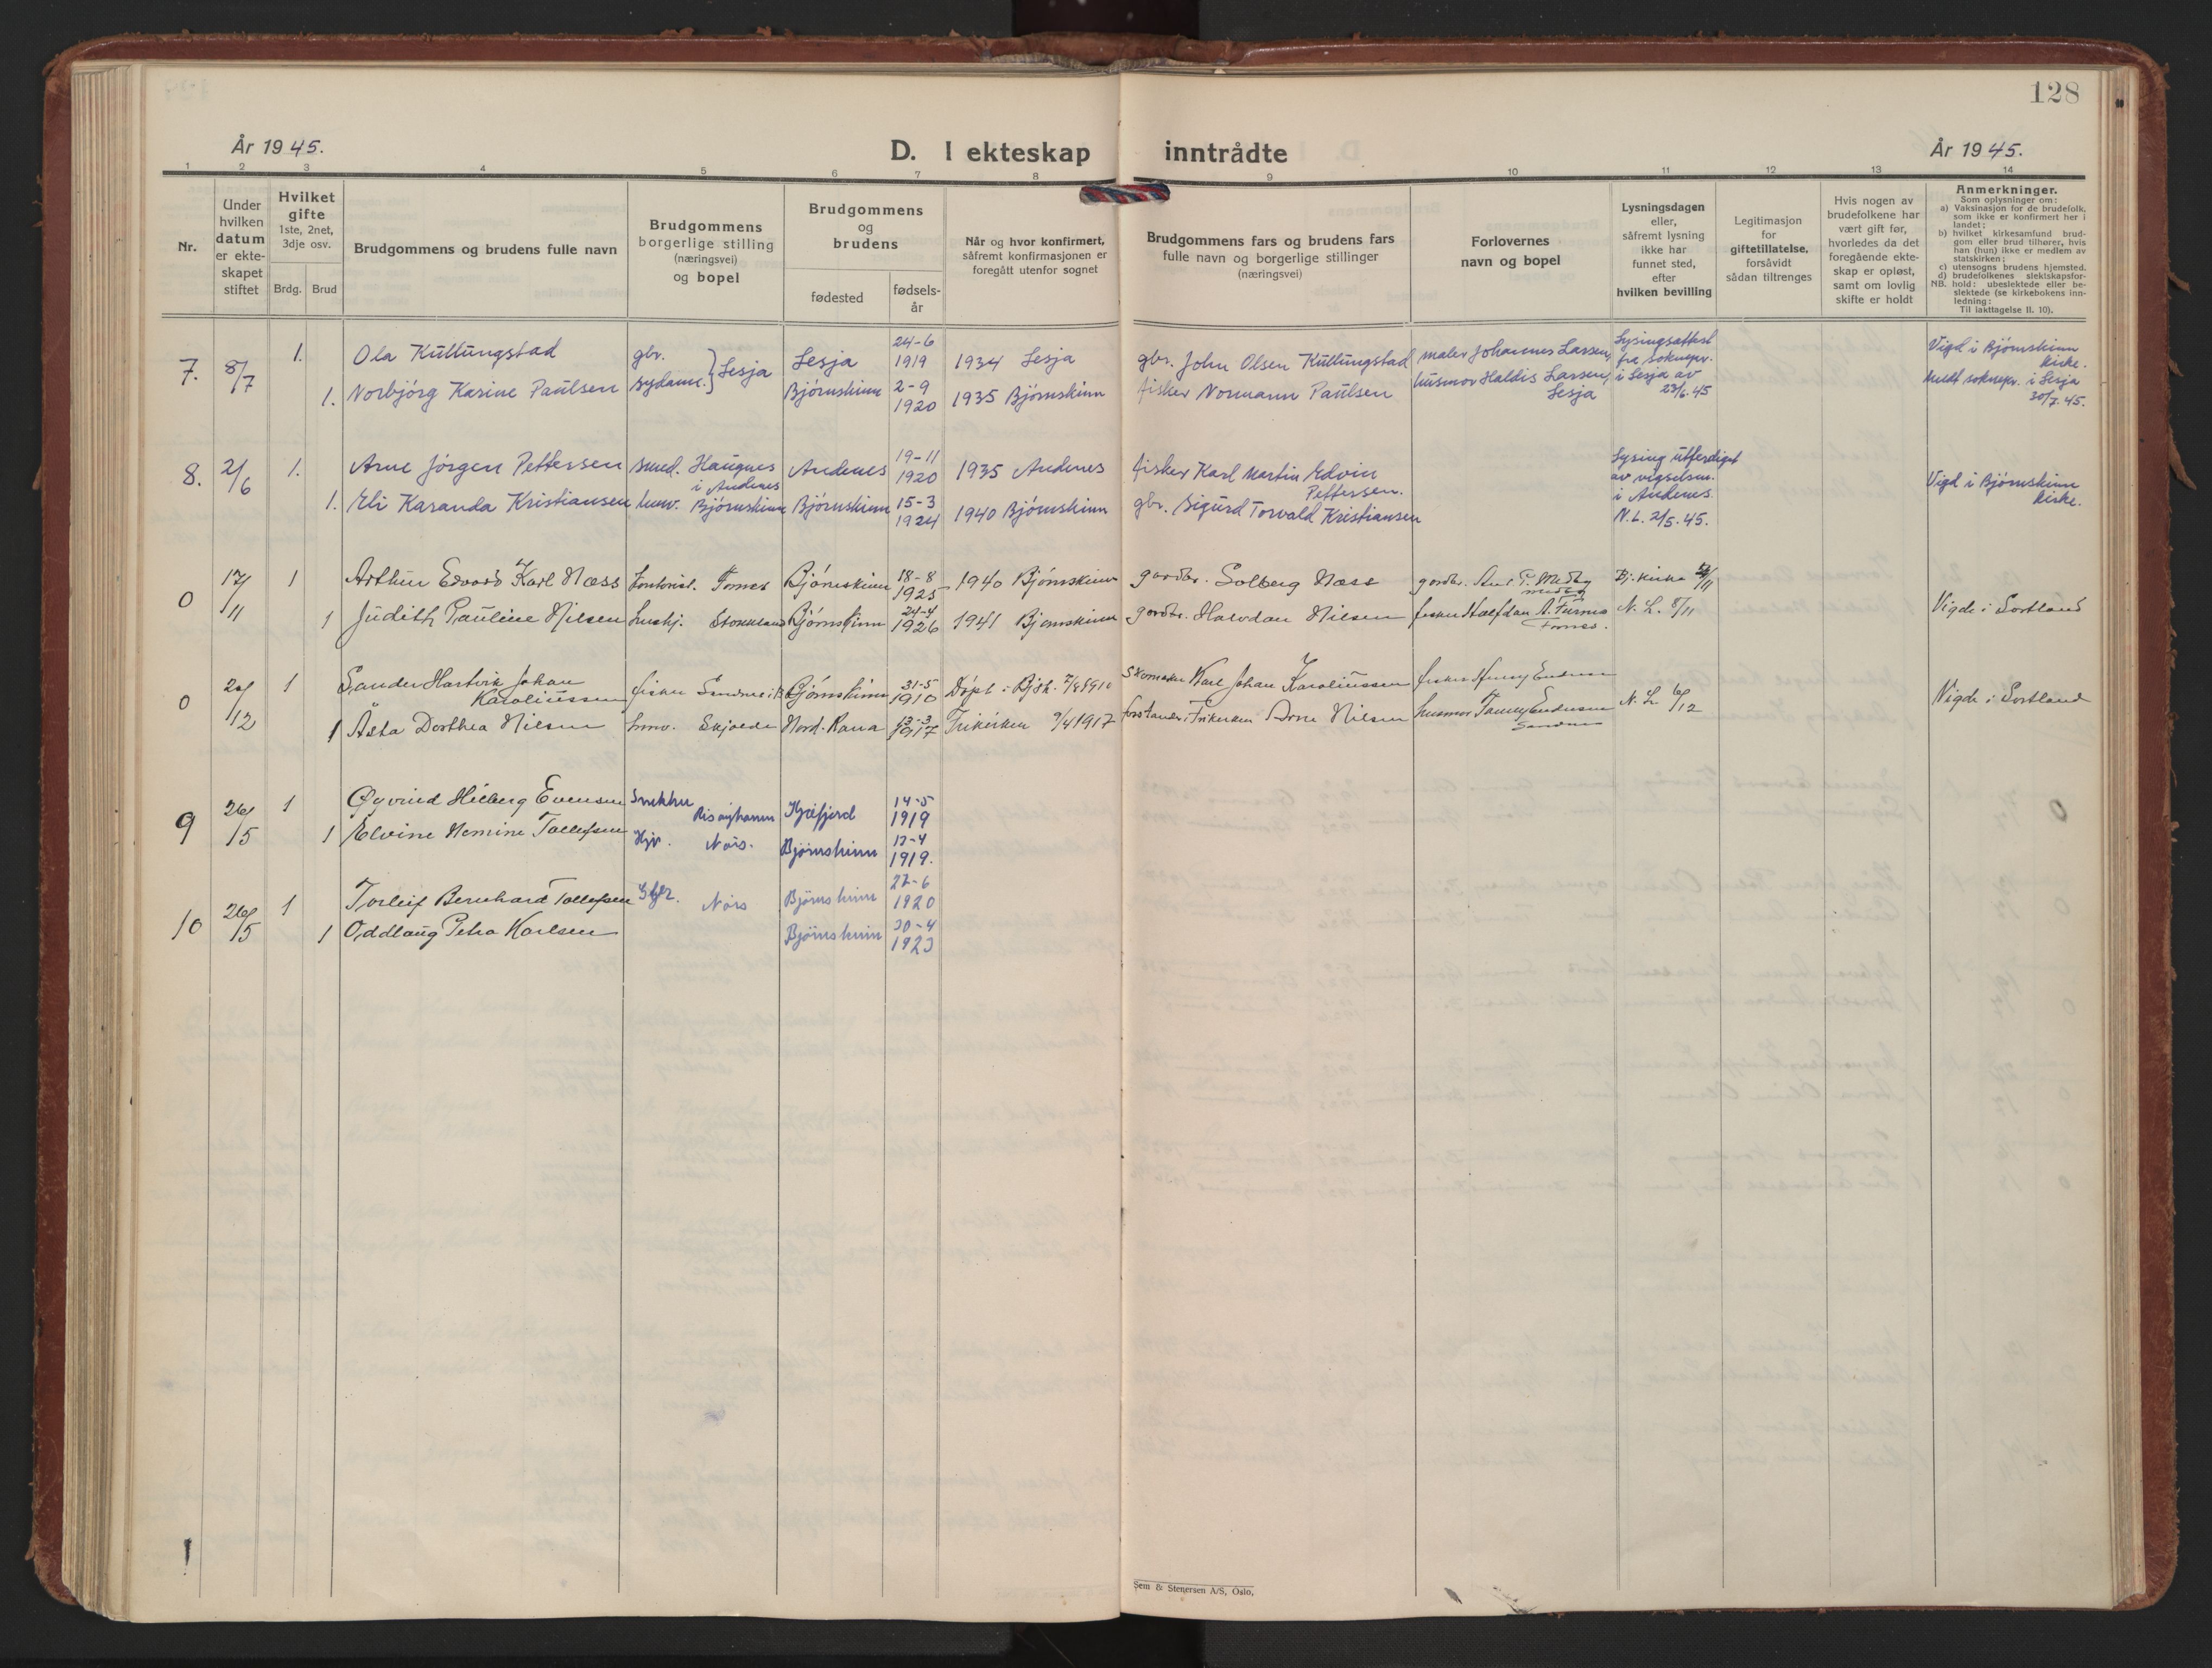 128
År 1945.
D. I ekteskap inntrådte
År 1945.
1 2 3 4 5 6 7 8 9 10 11 12 13 14
Nr.
Under
hvilken
datum
er ekte-
skapet
stiftet
Hvilket
gifte
1ste, 2net,
3dje osv.
Brdg. Brud
Brudgommens og brudens fulle navn
Brudgommens
borgerlige stilling
(næringsvei)
og bopel
Brudgommens
og
brudens
fødested
fødsels-
år
Når og hvor konfirmert,
såfremt konfirmasjonen er
foregått utenfor sognet
Brudgommens fars og brudens fars
fulle navn og borgerlige stillinger
(næringsvei)
Forlovernes
navn og bopel
Lysningsdagen
eller,
såfremt lysning
ikke har
funnet sted,
efter
hvilken bevilling
Legitimasjon
for
giftetillatelse,
forsåvidt
sådan tiltrenges
Hvis nogen av
brudefolkene har
vært gift før,
hvorledes da det
foregående ekte-
skap er opløst,
samt om lovlig
skifte er holdt
Anmerkninger.
Som oplysninger om:
a) Vaksinasjon for de brudefolk,
som ikke er konfirmert her i
landet;
b) hvilket kirkesamfund brud-
gom eller brud tilhører, hvis
han (hun) ikke er medlem av
statskirken;
c) utensogns brudens hjemsted.
d) brudefolkenes slektskapsfor-
NB. hold: ubeslektede eller be-
slektede (se kirkebokens inn-
ledning:
Til iakttagelse II. 10).
7. 8/7 1. Ola Kullungstad gbr. } Lesja Lesja 24-6 1919 1934 Lesja gbr. John Olsen Kullungstad maler Johannes Larsen, Lysingsattest fra soknepr. Vigd i Bjørnskinn kirke.
1. Norbjörg Karine Paulsen sydame. Bjørnskinn 2-9 1920 1935 Bjørnskinn fisker Normann Paulsen husmor Haldis Larsen, Lesja i Lesja av 23/6.45 soknepr. i Lesja 30/7.45.
8. 2/6 1. Arne Jörgen Pettersen smed. Haugnes i Andenes Andenes 19-11 1920 1935 Andenes fisker Karl Martin Edvin Pettersen. Lysing utferdiget av vigselsm. Vigd i Bjørnskinn kirke.
1. Eli Karanda Kristiansen husv. Bjørnskinn Bjørnskinn 15-3 1924 1940 Bjørnskinn gbr. Sigurd Torvald Kristiansen i Andenes. N.L. 2/5.45.
0 17/11 1 Arthur Edvard Karl Næss Kontorist. Fornes Bjørnskinn 18-8 1925 1940 Bjørnskinn gardbr. Solberg Næss gardbr. P. Medby Bj. kirke Vigde i Sortland
1 Judith Pauline Nilsen hushj. Stokkland Bjørnskinn 24-4 1926 1941 Bjørnskinn gardbr. Halvdan Nilsen fisker Halfdan A. Furnes Fornes. N. L. 8/11
0 1 Sander Hartvik Johan Karoliussen fisker Bjørnskinn 31-5 1910 Døpt i Bjsk. Skomaker Karl Johan Karoliussen fisker Vigde i Sortland
1 Åsta Dorthea Nilsen husv. Skjolde Nord-Rana 13-3 1917 Frikirken 9/4 1917 forstander i Frikirken Arne Nilsen husmor N. L. 6/12
9 26/5 1 Øyvind Hilberg Evensen Snekker Risøyhamn Kjøfjord 14-5 1919
1 Elvine Nemine Tollefsen Hjv. Nøis. Bjørnskinn 17-4 1919.
10 26/5 1 Torleif Bernhard Tollefsen Nøis Bjørnskinn 27-6 1920
1 Oddlaug Petra Karlsen Bjørnskinn 30-4 1923
Sem & Stenersen A/S, Oslo.